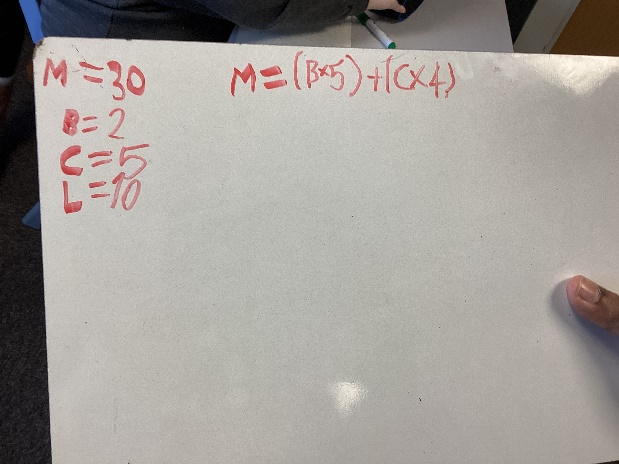 M=30
B=2
C=5
L=10
M=(B×5)+(C×4)